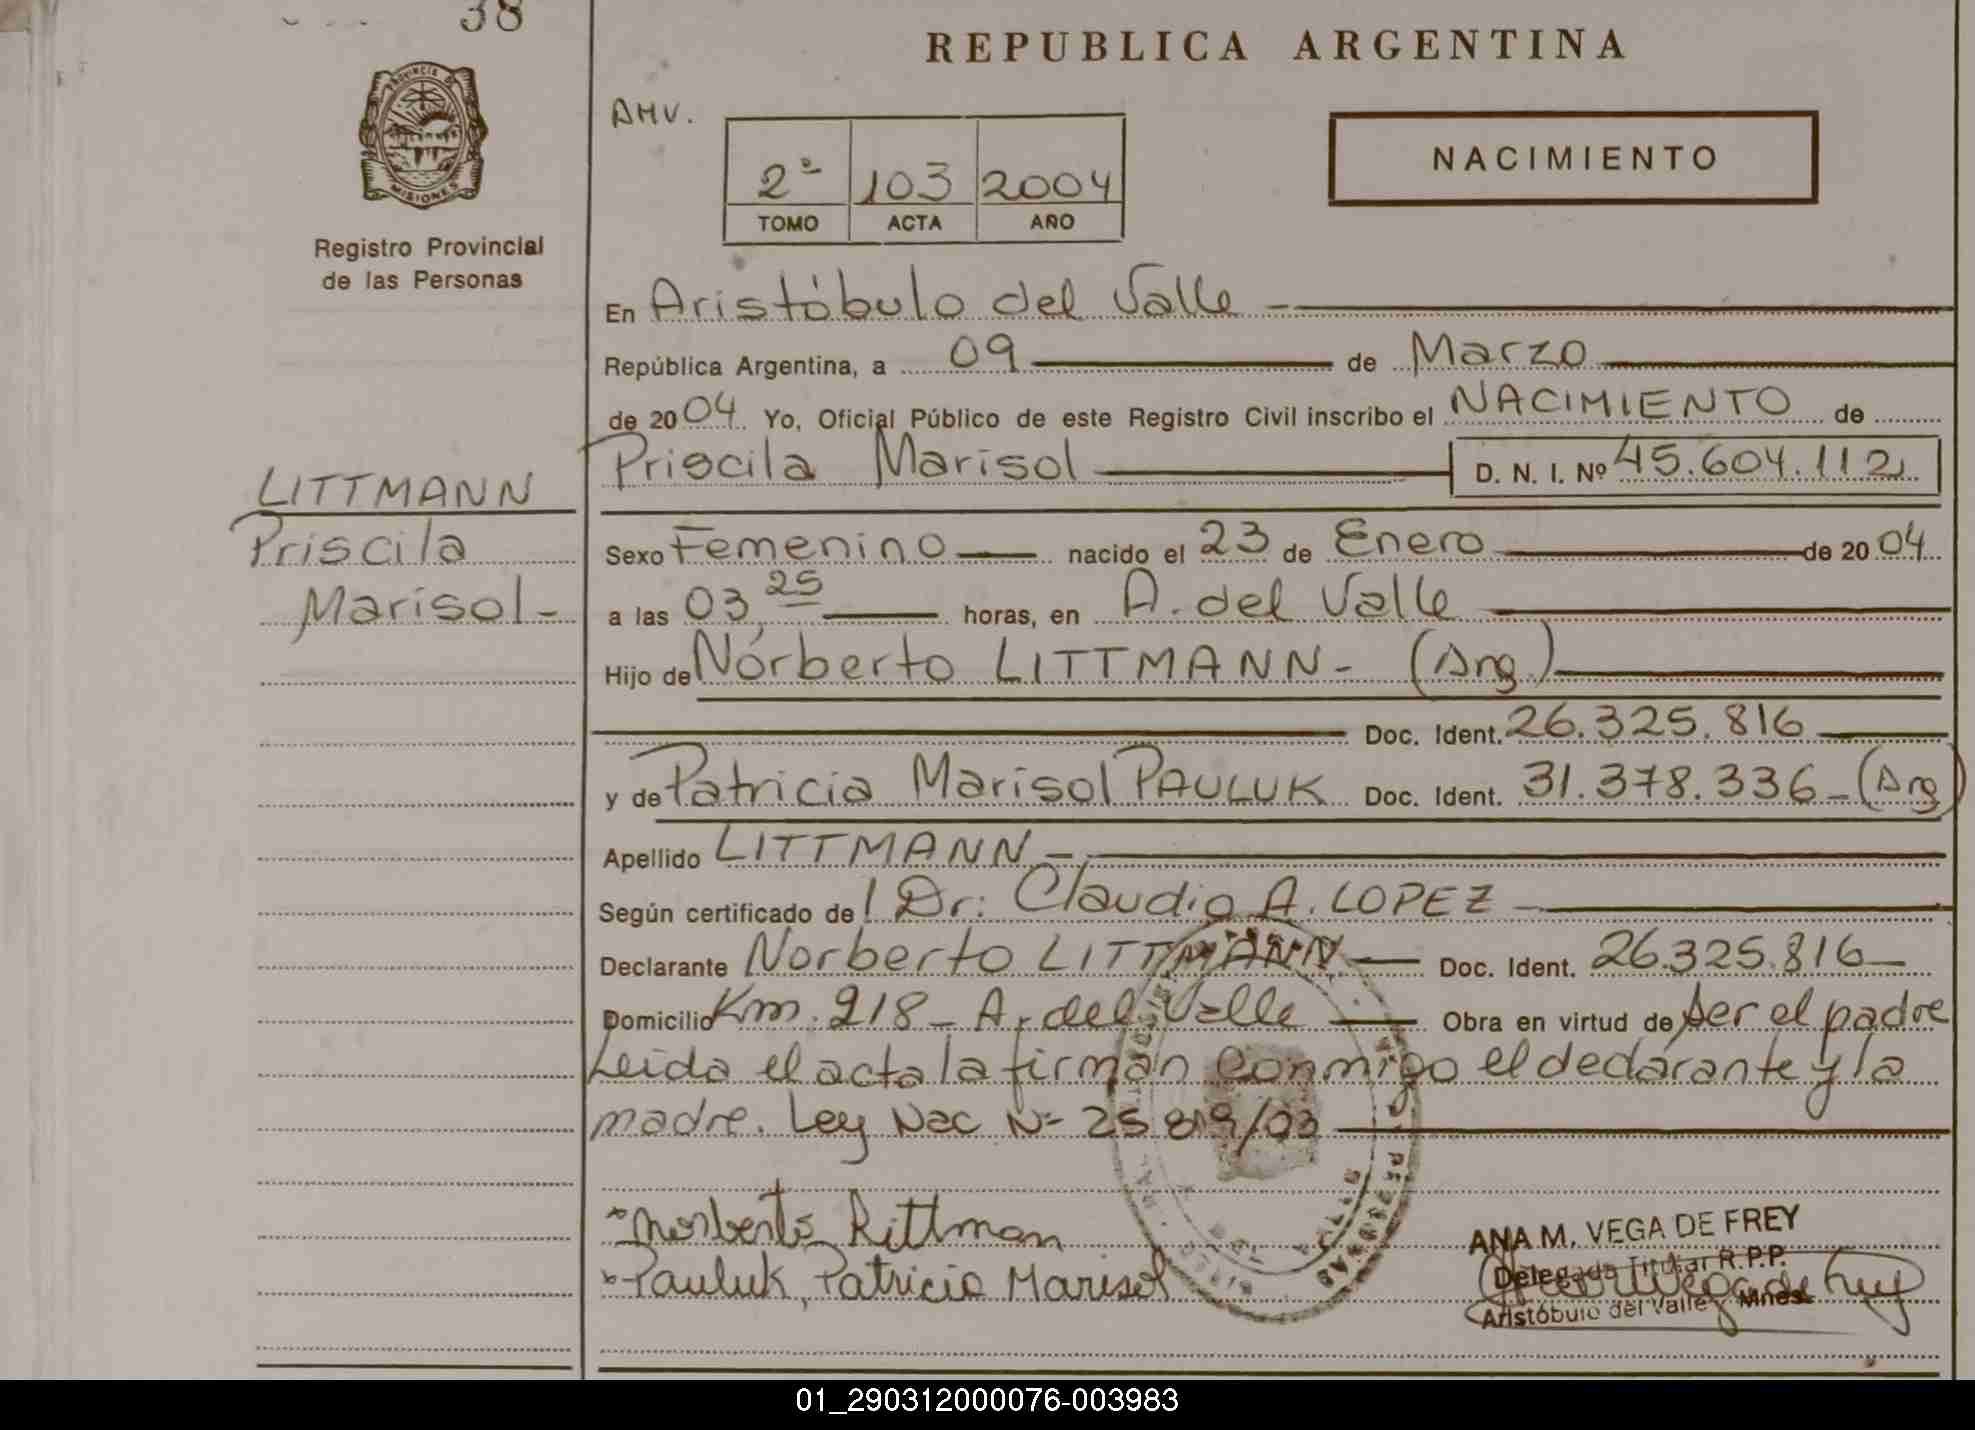 38
REPUBLICA ARGENTINA
PROVINCIA DE MISIONES
Registro Provincial
de las Personas
AMV.
NACIMIENTO
2º 103 2004
TOMO ACTA AÑO
En Aristóbulo del Valle -
República Argentina, a 09 de Marzo
de 2004. Yo, Oficial Público de este Registro Civil inscribo el NACIMIENTO de
Priscila Marisol D. N. I. Nº 45.604.112
LITTMANN
Priscila
Marisol-
Sexo Femenino nacido el 23 de Enero de 2004
a las 03,25 horas, en A. del Valle
Hijo de Norberto LITTMANN- (Arg.)
Doc. Ident. 26.325.816
y de Patricia Marisol PAULUK Doc. Ident. 31.378.336-(Arg)
Apellido LITTMANN-
Según certificado de Dr: Claudio A. LOPEZ
Declarante Norberto LITTMANN Doc. Ident. 26.325.816
Domicilio Km. 218- A. del Valle Obra en virtud de ser el padre
Leida el acta la firman conmigo el declarante y la
madre. Ley Nac Nº 25.819/03
Norberto Rittman
Pauluk, Patricia Marisol
ANA M. VEGA DE FREY
Delegada Titular R.P.P.
Aristóbulo del Valle Mnes.
01_290312000076-003983